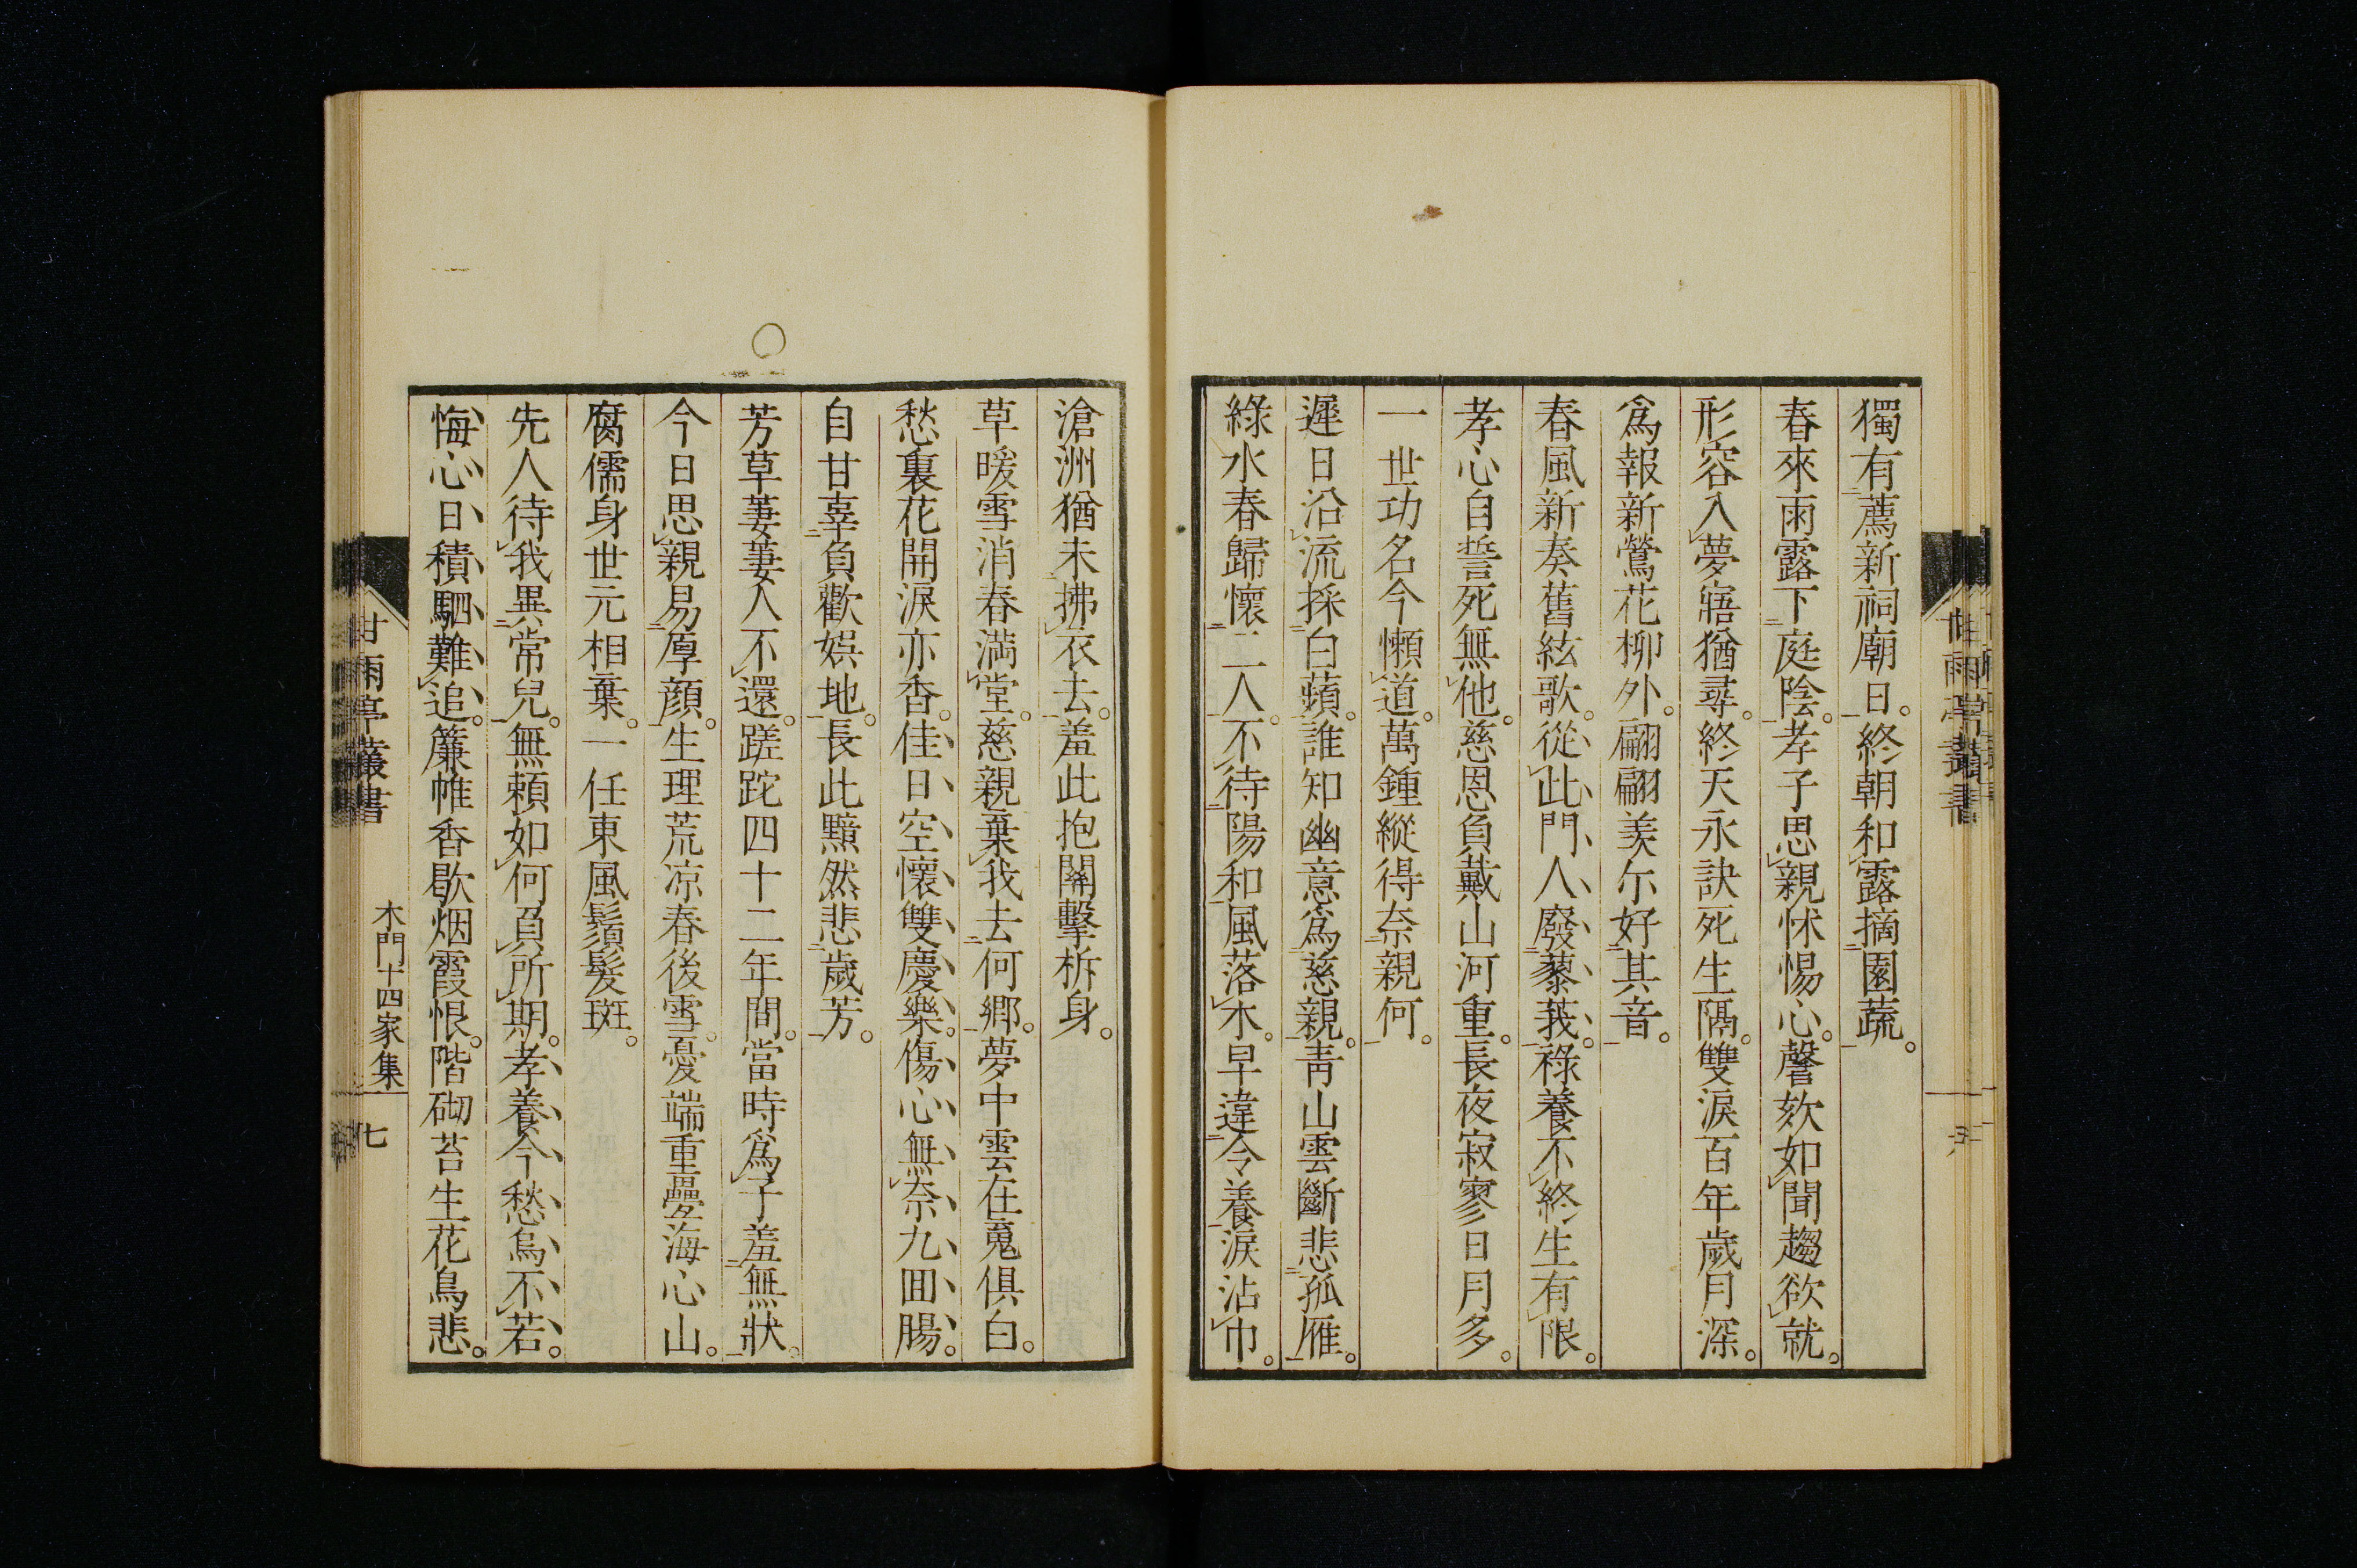 獨有薦新祠廟日。終朝和露摘園蔬。
春來雨露下庭陰。孝子思親怵惕心。謦欬如聞趨欲就。
形容入夢寤猶尋。終天永訣死生隔。雙淚百年歲月深。
爲報新鶯花柳外。翩翩羨尓好其音。
春風新奏舊絃歌。從此門人廢蓼莪。祿養不終生有限。
孝心自誓死無他。慈恩負戴山河重。長夜寂寥日月多。
一世功名今懶道。萬鍾縱得奈親何。
遲日沿流採白蘋。誰知幽意爲慈親。青山雲斷悲孤雁。
綠水春歸懷二人。不待陽和風落木。早違令養淚沾巾。
滄洲猶未拂衣去。羞此抱關擊柝身。
草暖雪消春滿堂。慈親棄我去何鄉。夢中雲在寬俱白。
愁裏花開淚亦香。佳日空懷雙慶樂。傷心無奈九囬腸。
自甘辜負歡娛地。長此黯然悲歲芳。
芳草萋萋人不還。蹉跎四十二年間。當時爲子羞無狀。
今日思親易厚顔。生理荒凉春後雪。憂端重疊海心山。
腐儒身世元相棄。一任東風鬚髮斑。
先人待我異常兒。無賴如何負所期。孝養今愁烏不若。
悔心日積駟難追。簾帷香歇烟霞恨。階砌苔生花鳥悲。
甘雨亭叢書
木門十四家集
七